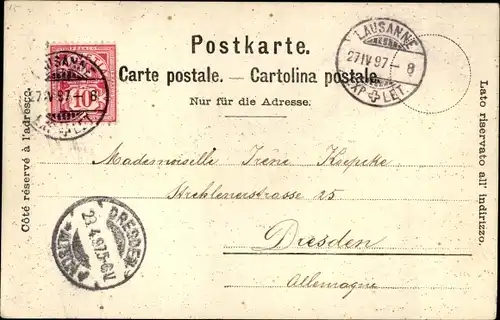 Postkarte.
Carte postale. — Cartolina postale.
Nur für die Adresse.
Côté réservé à l'adresse.
Lato riservato all' indirizzo.
FRANCO
10
LAUSANNE
27 IV 97 – 8
EXP. LET.
LAUSANNE
27 IV 97 – 8
EXP. LET.
Mademoiselle Irène Koepcke
Strehlenerstrasse 25
Dresden
Allemagne
DRESDEN